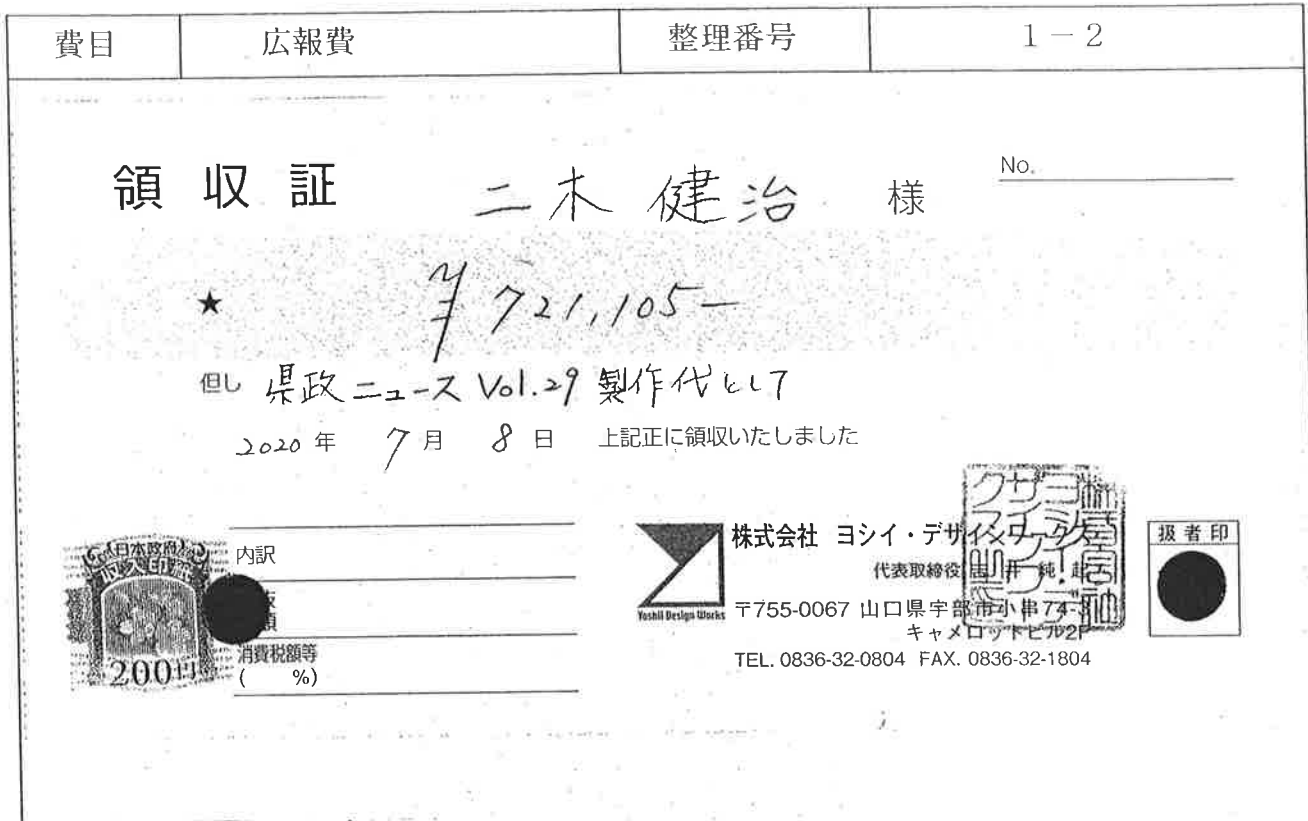 費目 広報費 整理番号 1－2
領収証 二木 健治 様 No.
★ ¥721,105－
但し 県政ニュース Vol.29 製作代として
2020年 7月 8日 上記正に領収いたしました
日本政府
収入印紙
200円
内訳
消費税額等
( %)
Yoshii Design Works
株式会社 ヨシイ・デザインワークス
代表取締役 吉井 純起
〒755-0067 山口県宇部市小串74-3
キャメロットビル2F
TEL. 0836-32-0804 FAX. 0836-32-1804
扱者印